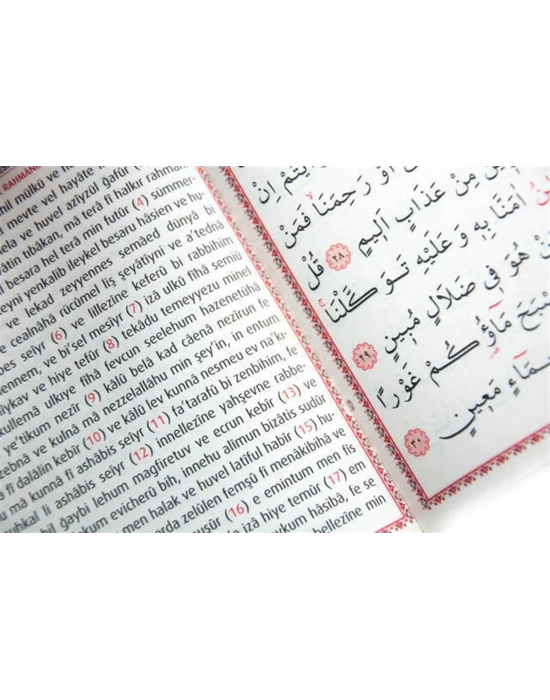 RAHMANİ
mülkü ve
meyte vel hayâte
ve huvel azîyzül gafûr
tıbâkan, mâ terâ fî halkır rahmân
besara hel terâ min futûr (4) sümmer
yenkalib ileykel besaru hâsien ve hu
ve lekad zeyyennes semâed dünyâ bi
cealnâhâ rücûmel liş şeyâtıyni ve a'tednâ
seıyr (6) ve lillezîne keferû bi rabbihim
ve bi'sel mesîyr (7) izâ ulkû fîhâ semiû
ve hiye tefûr (8) tekâdu temeyyezu minel
ulkıye fîhâ fevcun seelehum hazenetühâ
nezîr (9) kâlû belâ kad câenâ nezîrun fe
ve kulnâ mâ nezzelallâhu min şey'in, in entum
fî dalâlin kebîr (10) ve kâlû lev kunnâ nesmeu ev na'k
mâ kunnâ fî ashâbis seîyr (11) fa'tarafû bi zenbihim, fe
li ashâbis seîyr (12) innellezîne yahşevne rabbe-
bil ğaybi lehum magfiretuv ve ecrun kebîr (13) ve
evicherû bih, innehu alîmun bizâtis sudûr
men halak ve huvel latîful habîr (15) hu-
zelûlen femşû fî menâkibihâ ve
(16) e emintum men fis
izâ hiye temûr (17) em
hâsıbâ, fe se
اِنْ
اَوْ رَحِمَنَا فَمَنْ
مِنْ عَذَابٍ اَلِيمٍ ٢٨ قُلْ
اٰمَنَّا بِهِ وَعَلَيْهِ تَوَكَّلْنَا
هُوَ فِي ضَلَالٍ مُبِينٍ ٢٩
مَاؤُكُمْ غَوْرًا
مَعِينٍ ٣٠